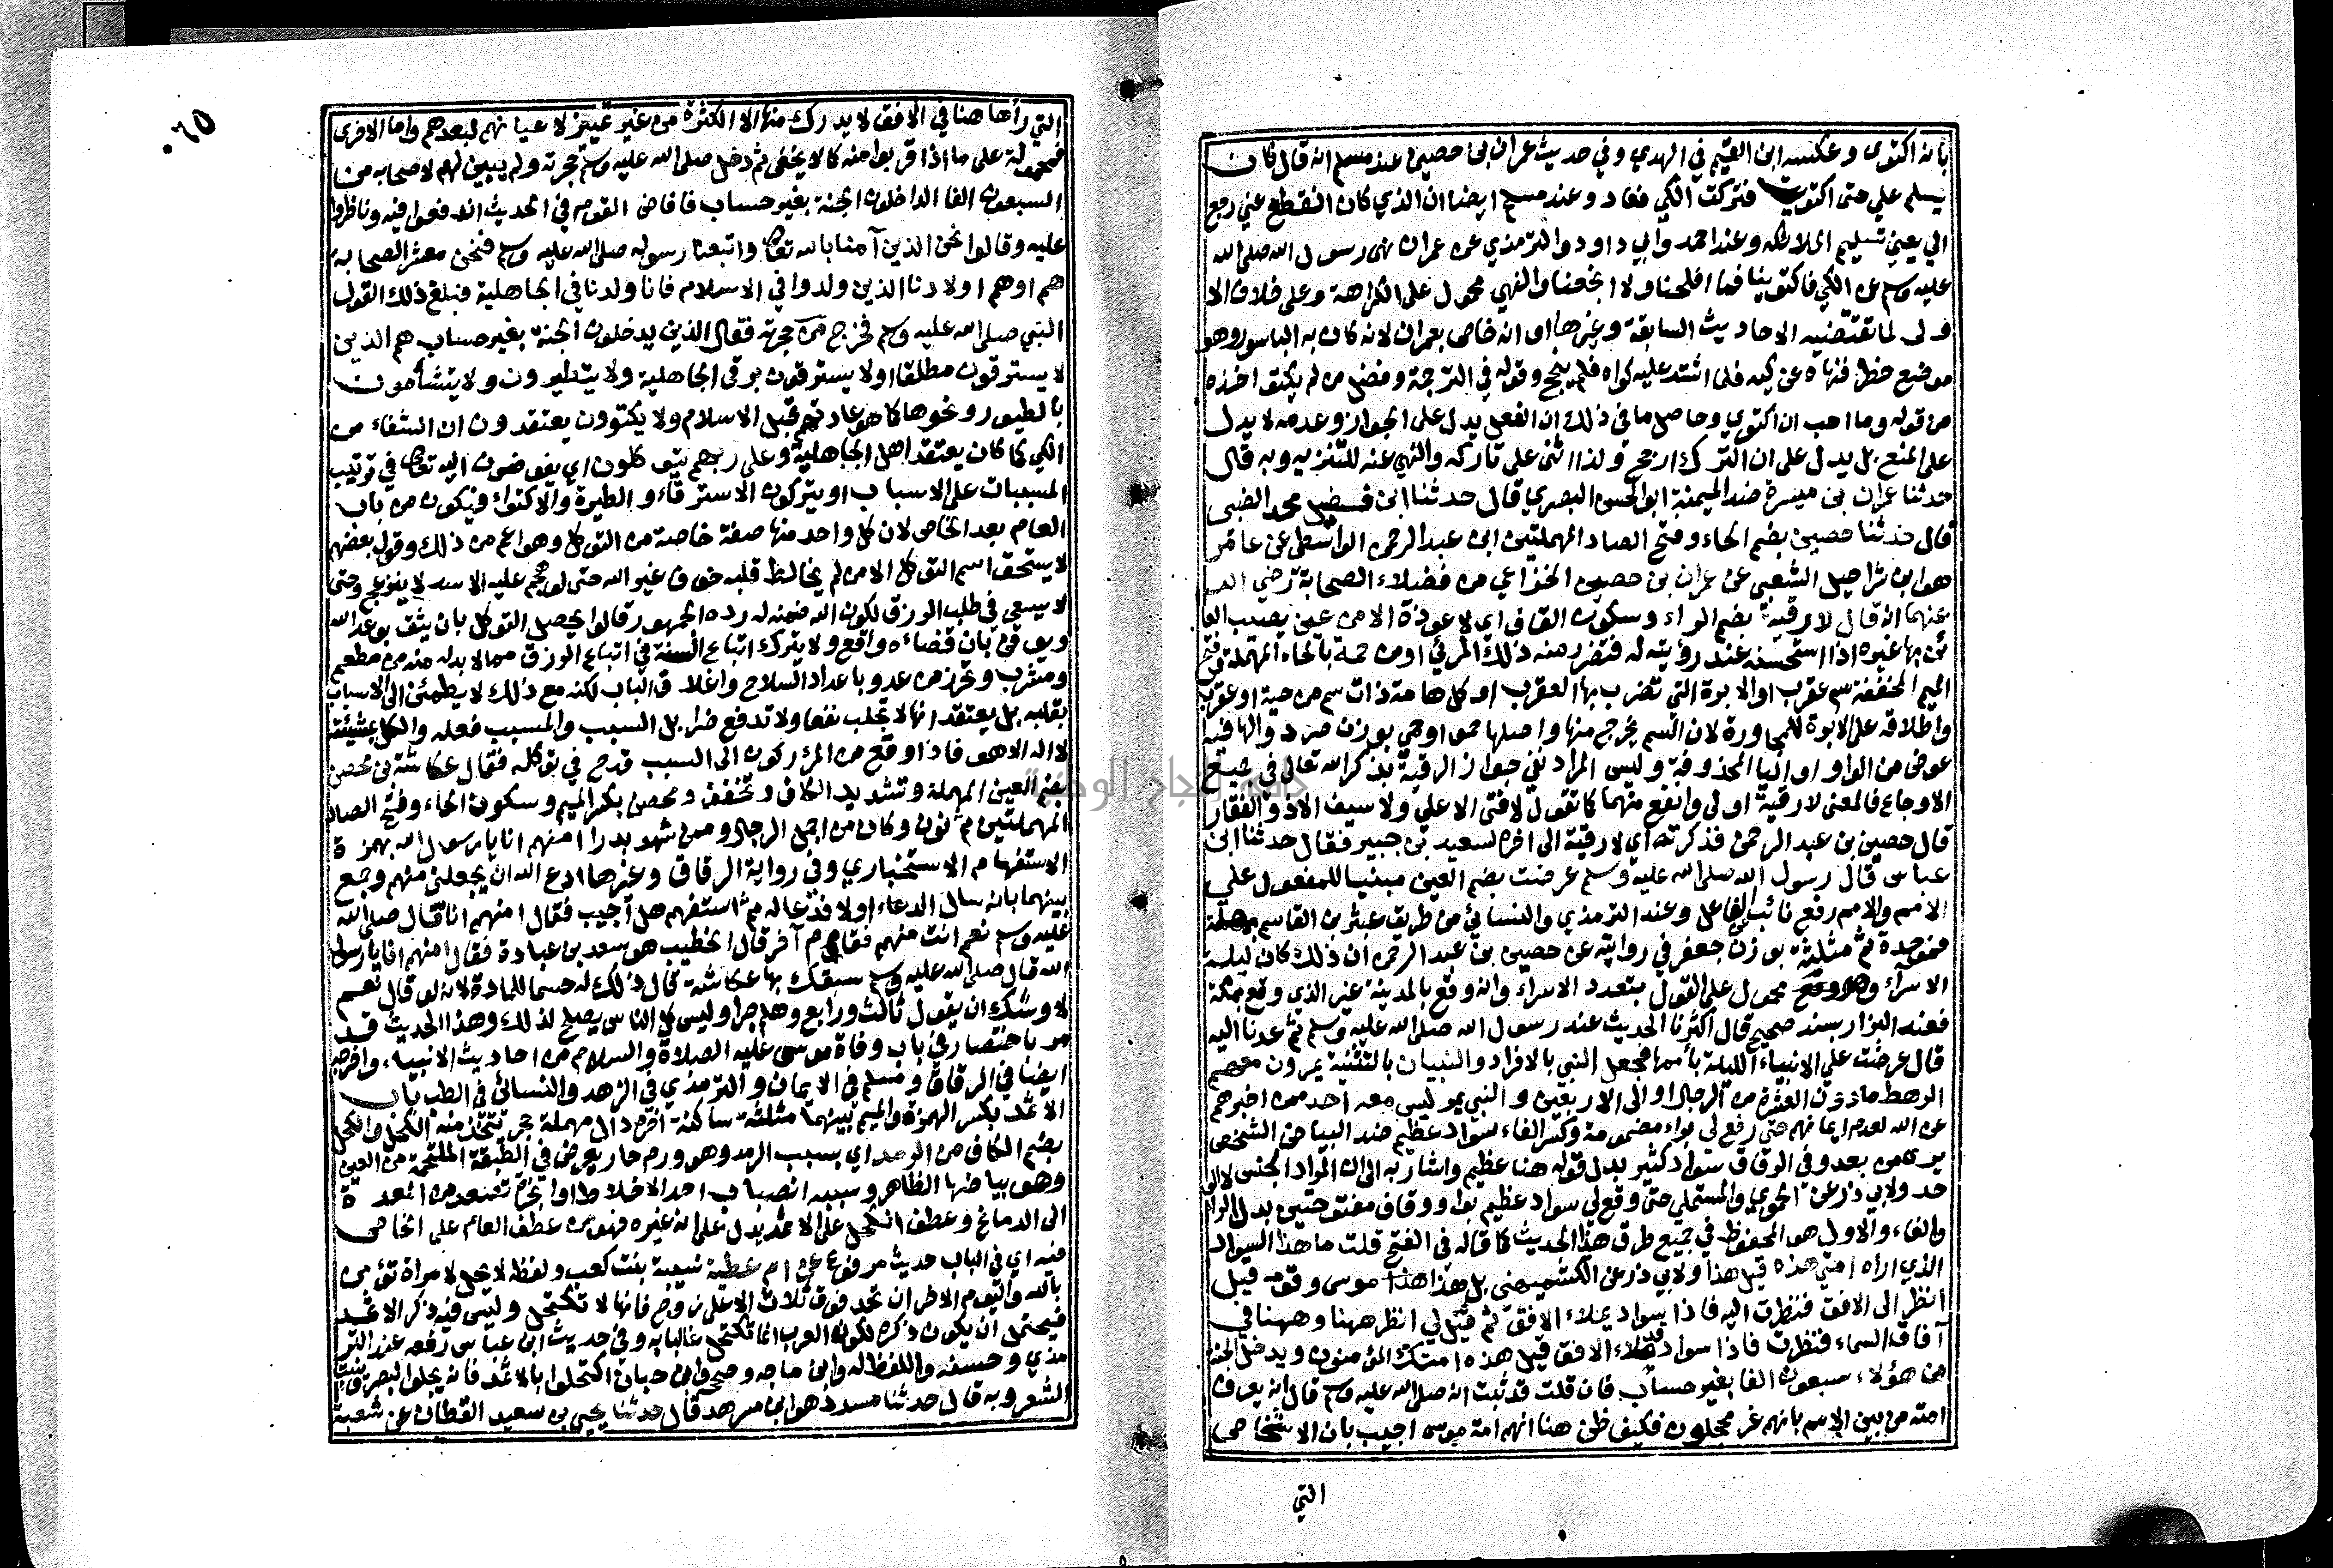 بانه اكتوى وعكسه ابن القيم في الهدي وفي حديث عمران بن حصين عند مسلم انه قال كان
يسلم علي حتى اكتويت فتركت الكي فعاد وعند مسلم ايضا ان الذي كان انقطع عني رجع
الي يعني تسليم الملائكه وعند احمد وابي داود والترمذي عن عمران نهى رسول الله صلى الله
عليه وسلم عن الكي فاكتوينا فما افلحنا ولا انجحنا والنهي محمول على الكراهة وعلى خلاف الا
ولى لما تقتضيه الاحاديث السابقة وغيرها او انه خاص بعمران لانه كان به الباسور وهو
موضع خطر فنهاه عن كيه فلما اشتد عليه كواه فلم ينجح وقوله في الترجمة وفضل من لم يكتو اخذه
من قوله وما احب ان اكتوي وحاصل ما في ذلك ان الفعل يدل على الجواز وعدمه لا يدل
على المنع بل يدل على ان الترك ارجح ولذا اثنى على تاركه والنهي عنه للتنزيه وبه قال
حدثنا عمران بن ميسرة ضد الميمنة ابو الحسن البصري قال حدثنا ابن فضيل محمد الضبي
قال حدثنا حصين بضم الحاء وفتح الصاد المهملتين ابن عبد الرحمن الواسطي عن عامر
هو ابن شراحيل الشعبي عن عمران بن حصين الخزاعي من فضلاء الصحابة رضي الله
عنهما انه قال لا رقية بضم الراء وسكون القاف اي لا عوذة الا من عين يصيب العا
ئن بها غيره اذا استحسنه عند رؤيته له فتضرر منه ذلك المرئي او من حمة بالحاء المهملة وفتح
الميم المخففة سم عقرب او الابرة التي تضرب بها العقرب او كل هامة ذات سم من حية او عقرب
واطلاقه على الابرة للمجاورة لان السم يخرج منها واصلها حمو او حمي بوزن صرد والها فيه
عوض من الواو او اليا المحذوفة وليس المراد نفي جواز الرقية بذكر الله تعالى في جميع
الاوجاع فالمعنى لا رقية اولى وانفع منهما كما تقول لا فتى الا علي ولا سيف الا ذو الفقار
قال حصين بن عبد الرحمن فذكرته اي لا رقية الى اخره لسعيد بن جبير فقال حدثنا ابن
عباس قال رسول الله صلى الله عليه وسلم عرضت بضم العين مبنيا للمفعول علي
الامم والامم رفع نائب الفاعل وعند الترمذي والنسائي من طريق عبثر بن القاسم بمهملة
فموحدة ثم مثلثة بوزن جعفر في روايته عن حصين بن عبد الرحمن ان ذلك كان ليلة
الاسرآء وهو محمول على القول بتعدد الاسراء وانه وقع بالمدينة غير الذي وقع بمكة
فعند البزار بسند صحيح قال اكثرنا الحديث عند رسول الله صلى الله عليه وسلم ثم عدنا اليه
قال عرضت علي الانبياء الليلة بأممها فجعل النبي بالافراد والنبيان بالتثنية يمرون معهم
الرهط مادون العشرة من الرجال او الى الاربعين والنبي يمر ليس معه احد ممن اخبرهم
عن الله لعدم ايمانهم حتى رفع لي براء مضمومة وكسر الفاء سواد عظيم ضد البياض الشخص
يرى من بعد وفي الرقاق سواد كثير بدل قوله هنا عظيم واشار به الى ان المراد الجنس لا الوا
حد ولابي ذر عن الحموي والمستملي حتى وقع لي سواد عظيم بواو وقاف مفتوحتين بدل الراء
والفاء والاول هو المحفوظ في جميع طرق هذا الحديث كما قاله في الفتح قلت ما هذا السواد
الذي اراه امتي هذه قيل هذا ولابي ذر عن الكشميهني بل هذا موسى وقومه قيل
انظر الى الافق فنظرت اليه فاذا سواد يملاء الافق ثم قيل لي انظر ههنا وههنا في
آفاق السماء فنظرت فاذا سواد قد ملاء الافق قيل هذه امتك المؤمنون ويدخل الجنة
من هؤلاء سبعون الفا بغير حساب فان قلت قد ثبت انه صلى الله عليه وسلم قال انه يعرف
امته من بين الامم بانهم غر محجلون فكيف ظن هنا انهم امة موسى اجيب بان الاشخاص
التي
٠٦٥
التي رأها هنا في الافق لا يدرك منها الا الكثرة من غير تمييز لاعيانهم لبعدهم واما الاخرى
فمحمولة على ما اذا قربوا منه كما لا يخفى ثم دخل صلى الله عليه وسلم حجرته ولم يبين لهم لاصحابه من
السبعون الفا الداخلون الجنة بغير حساب فافاض القوم في الحديث اندفعوا فيه وناظروا
عليه وقالوا نحن الذين آمنا بالله تعالى واتبعنا رسوله صلى الله عليه وسلم فنحن معشر الصحابة
هم او هم اولادنا الذين ولدوا في الاسلام فانا ولدنا في الجاهلية فبلغ ذلك القول
النبي صلى الله عليه وسلم فخرج من حجرته فقال الذين يدخلون الجنة بغير حساب هم الذين
لا يسترقون مطلقا او لا يسترقون برقى الجاهلية ولا يتطيرون ولا يتشأمون
بالطيور ونحوها كما هو عادتهم قبل الاسلام ولا يكتوون يعتقدون ان الشفاء من
الكي كما كان يعتقد اهل الجاهلية وعلى ربهم يتوكلون اي يفوضون اليه تعالى في ترتيب
المسببات على الاسباب او يتركون الاسترقاء والطيرة والاكتواء فيكون من باب
العام بعد الخاص لان كل واحد منها صفة خاصة من التوكل وهو اعم من ذلك وقول بعضهم
لا يستحق اسم التوكل الا من لم يخالط قلبه خوف غير الله حتى لو هجم عليه الاسد لا ينزعج وحتى
لا يسعى في طلب الرزق لكون الله ضمنه له رده الجمهور وقالوا يحصل التوكل بان يثق بوعد الله
ويوقن بان قضاءه واقع ولا يترك اتباع السنة في اتباع الرزق مما لا بد له منه من مطعم
ومشرب وتحرز من عدو باعداد السلاح واغلاق الباب لكنه مع ذلك لا يطمئن الى الاسباب
بقلبه بل يعتقد انها لا تجلب نفعا ولا تدفع ضرا بل السبب والمسبب فعله والكل بمشيئته
لا اله الا هو فاذا وقع من المرء ركون الى السبب قدح في توكله فقال عكاشة بن محصن
بضم العين المهملة وتشديد الكاف وتخفف ومحصن بكسر الميم وسكون الحاء وفتح الصاد
المهملتين ثم نون وكان من اجمل الرجال وممن شهد بدرا امنهم انا يا رسول الله بهمزة
الاستفهام الاستخباري وفي رواية الرقاق وغيرها ادع الله ان يجعلني منهم وجمع
بينهما بانه سال الدعاء اولا فدعا له ثم استفهم هل اجيب فقال امنهم انا قال صلى الله
عليه وسلم نعم انت منهم فقام آخر قال الخطيب هو سعد بن عبادة فقال امنهم انا يا رسول
الله قال صلى الله عليه وسلم سبقك بها عكاشة قال ذلك له حسما للمادة لانه لو قال نعم
لاوشك ان يقول ثالث ورابع وهلم جرا وليس كل الناس يصلح لذلك وهذا الحديث قد
مر باختصار في باب وفاة موسى عليه الصلاة والسلام من احاديث الانبياء واخرجه
ايضا في الرقاق ومسلم في الايمان والترمذي في الزهد والنسائي في الطب باب
الاثمد بكسر الهمزة والميم بينهما مثلثة ساكنة اخره دال مهملة حجر تتخذ منه الكحل والكحل
بضم الكاف من الرمد اي بسبب الرمد وهو ورم حار يعرض في الطبقة الملتحمة من العين
وهو بياضها الظاهر وسببه انصباب احد الاخلاط او ابخرة تصعد من المعدة
الى الدماغ وعطف الكحل على الاثمد يدل على انه غيره فهو من عطف العام على الخاص
فيه اي في الباب حديث مرفوع عن ام عطية نسيبة بنت كعب ولفظه لا يحل لامراة تؤمن
بالله واليوم الاخر ان تحد فوق ثلاث الا على زوج فانها لا تكتحل وليس فيه ذكر الاثمد
فيحتمل ان يكون ذكره لكون العرب انما تكتحل غالبا به وفي حديث ابن عباس رفعه عند التر
مذي وحسنه واللفظ له وابن ماجه وصححه ابن حبان اكتحلوا بالاثمد فانه يجلوا البصر وينبت
الشعر وبه قال حدثنا مسدد هو ابن مسرهد قال حدثنا يحيى بن سعيد القطان عن شعبة